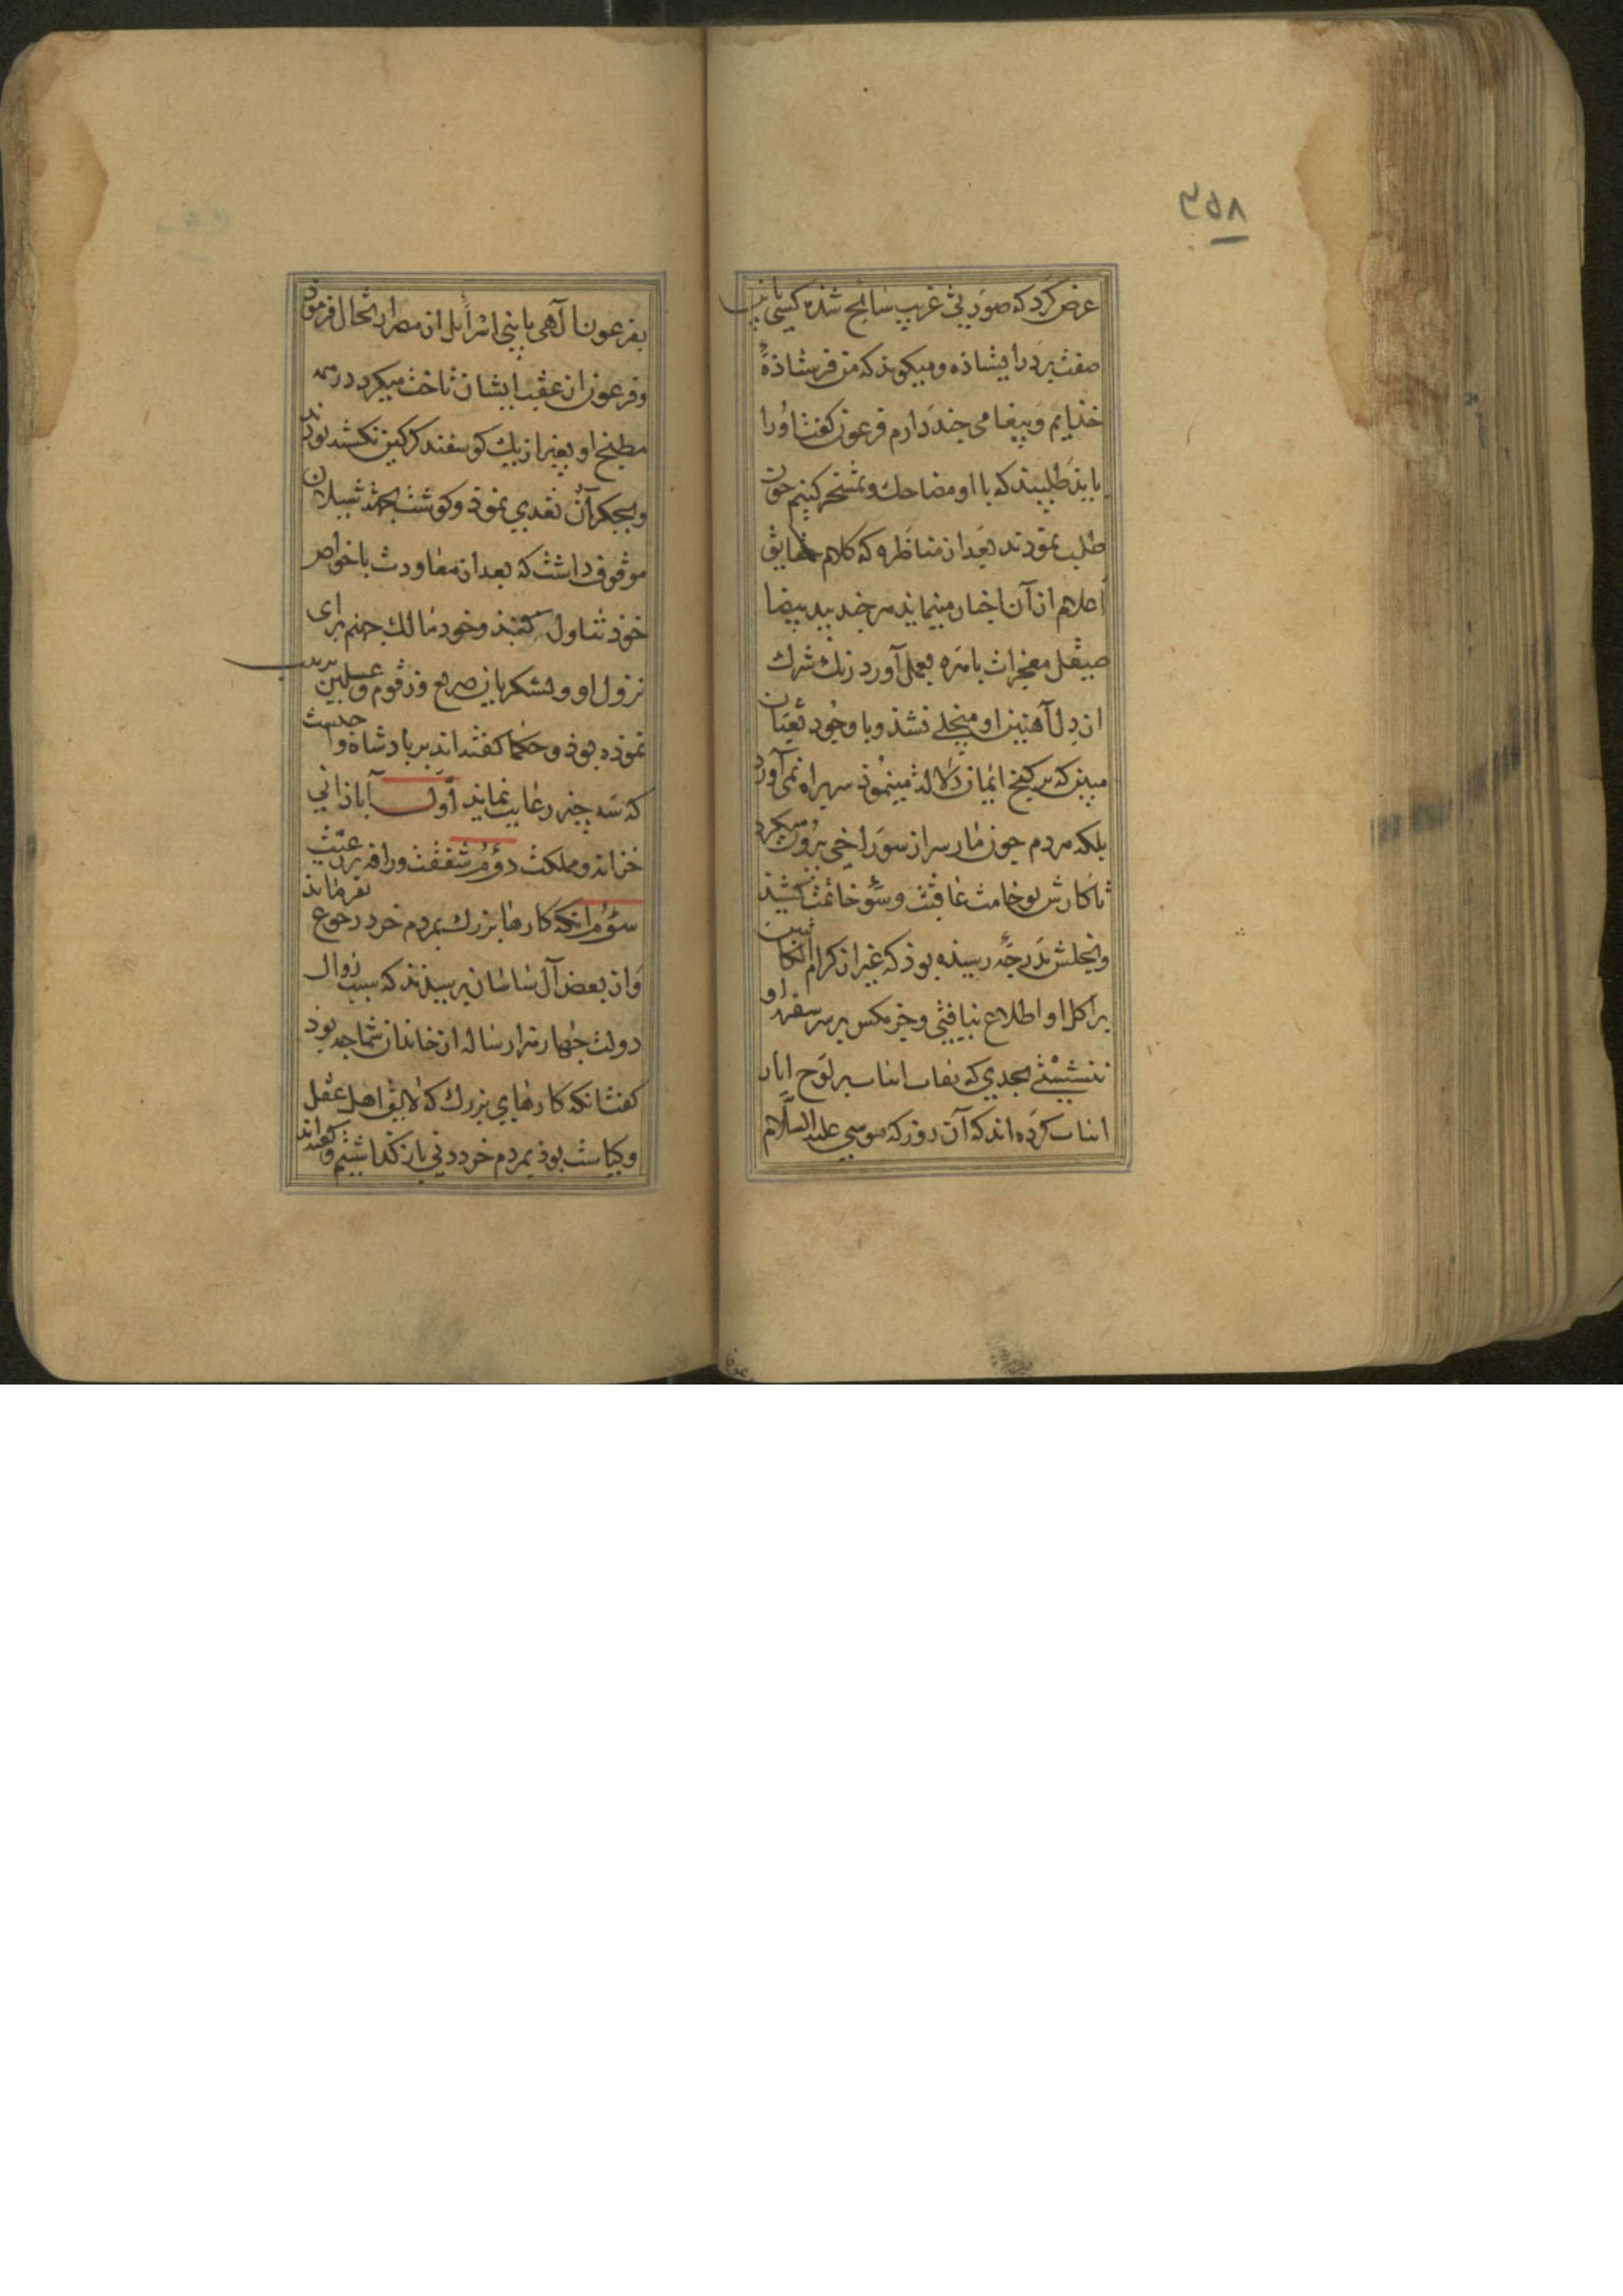 ۳۵۸
عرض کرد که صورتی غریب سانح شذه کسی باین
صفت بر در ایستاذه و میکوید که من فرستاذهٔ
خذایم و پیغامی چند دارم فرعون کفت او را
بایذ طلبیند که با او مضاحك و تمسخر کنیم چون
طلب نمودند بعد از مناظره که کلام حقایق
اعلام از آن اخبار مینماید هر چند بید بیضا
صیقل معجزات باهره بعمل آورد زنك شرك
از دل آهنین او منجلی نشذ و با وجود ثعبان
مبین که بر کنج ایمان دلالت مینموذ سر براه نمی آورد
بلکه مردم چون مار سر از سوراخی برون میکرد
تا کارش بوخامت عاقبت و سوء خاتمت کشید
و بخلش بدرجهٔ رسیذه بوذ که غیر از کرام الکاتبین
بر اکل او اطلاع نیافتی و جز مکس بر سر سفرهٔ او
ننشستی بحدی که نقاب انساب بر لوح
انساب کرده اند که آن روز که موسی علیه السلام
بفرعون آل آهی با بنی اسرائیل از مصر ارتحال فرموذ
و فرعون از عقب ایشان تاخت میکرد در همه
مطبخ او بغیر از یك کوسفند کرکین نکشته بوذند
و بجکر آن تغدی نموذ و کوشت بجهت شیلان
موقوف داشت که بعد از معاودت با خواص
خوذ تناول کنند و خود مالك جهنم برای
نزول او و لشکریان ضریع و زقوم و غسلین ترتیب
نموده بوذ و حکما کفته اند بر پادشاه واجبست
که سه چیز رعایت نماید اول آباذانی
خزانه و مملکت دوم شفقت و رافه بر رعیت
سوم انکه کارها بزرك بمردم خرد رجوع نفرمایذ
و از بعض آل ساسان پرسیذند که سبب زوال
دولت چهار هزار ساله از خاندان شما چه بوذ
کفت انکه کارهای بزرك که لایق اهل عقل
و کیاست بوذ بمردم خرد دنی باز کذاشتیم و کفته اند